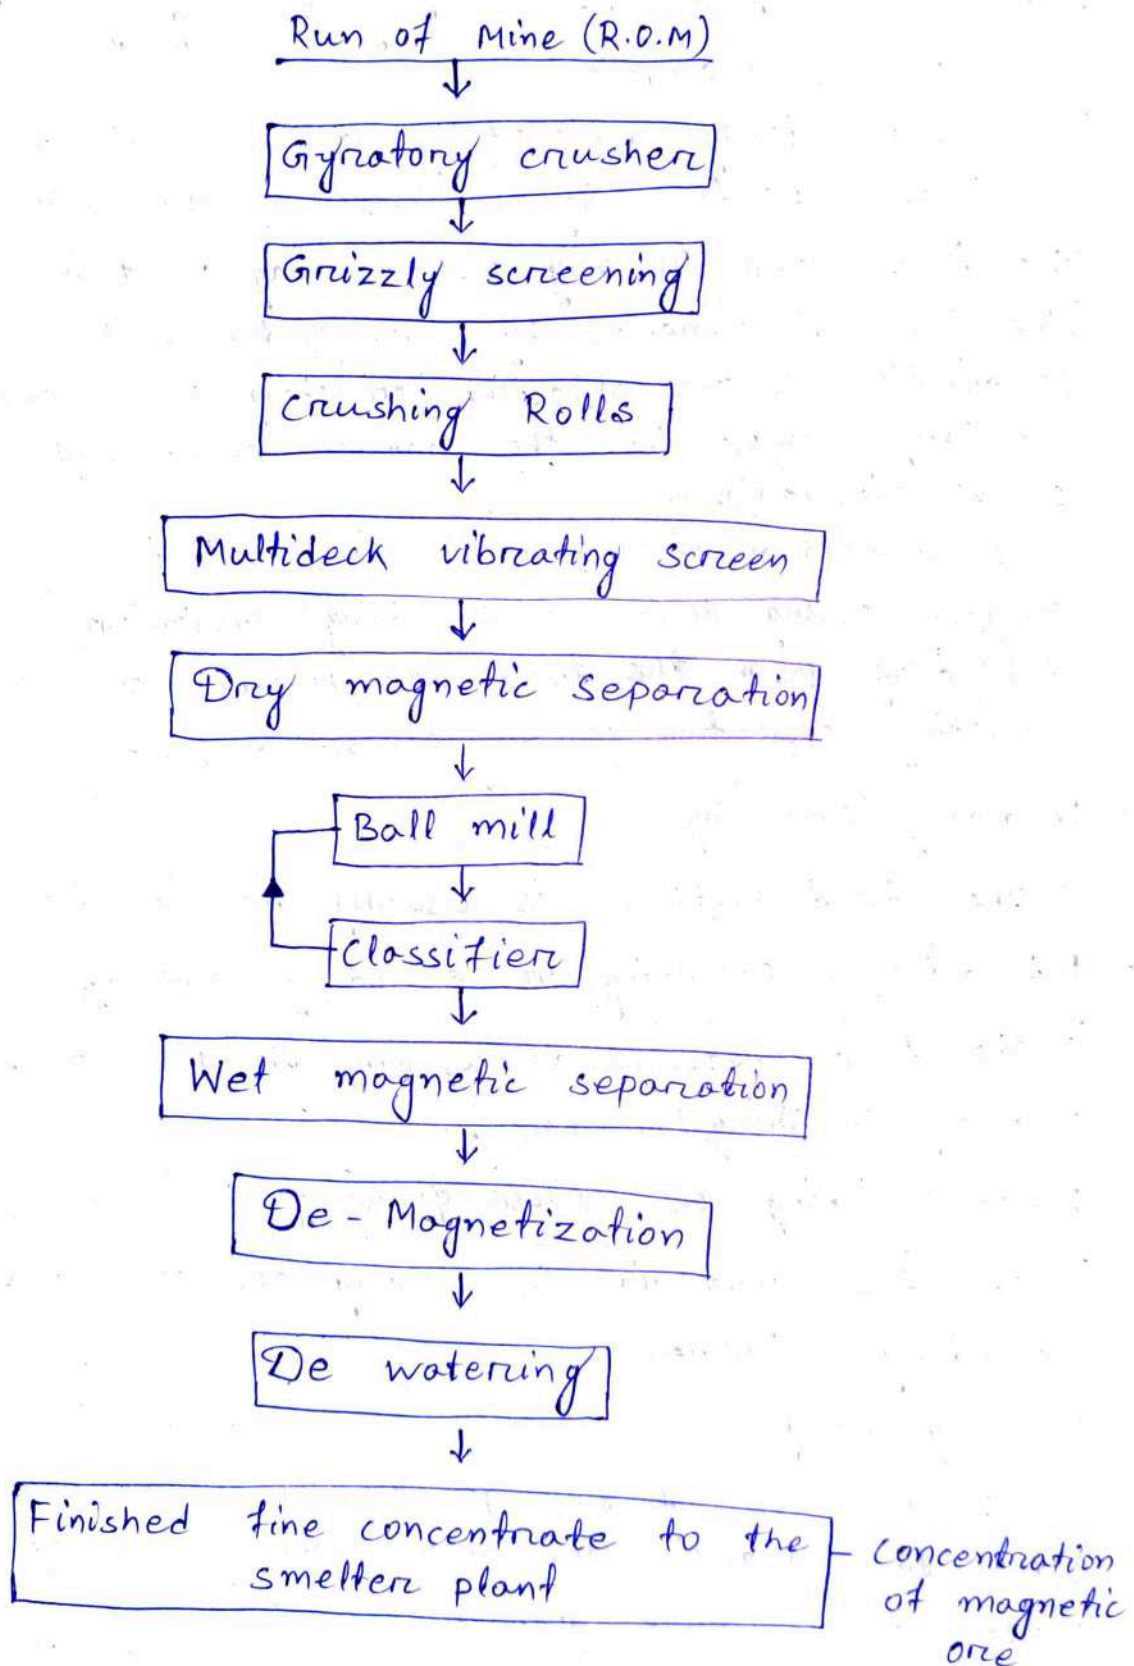 Run of Mine (R.O.M)
Gyratory crusher
Grizzly screening
Crushing Rolls
Multideck vibrating screen
Dry magnetic separation
Ball mill
Classifier
Wet magnetic separation
De - Magnetization
De watering
Finished fine concentrate to the
smelter plant
concentration
of magnetic
ore